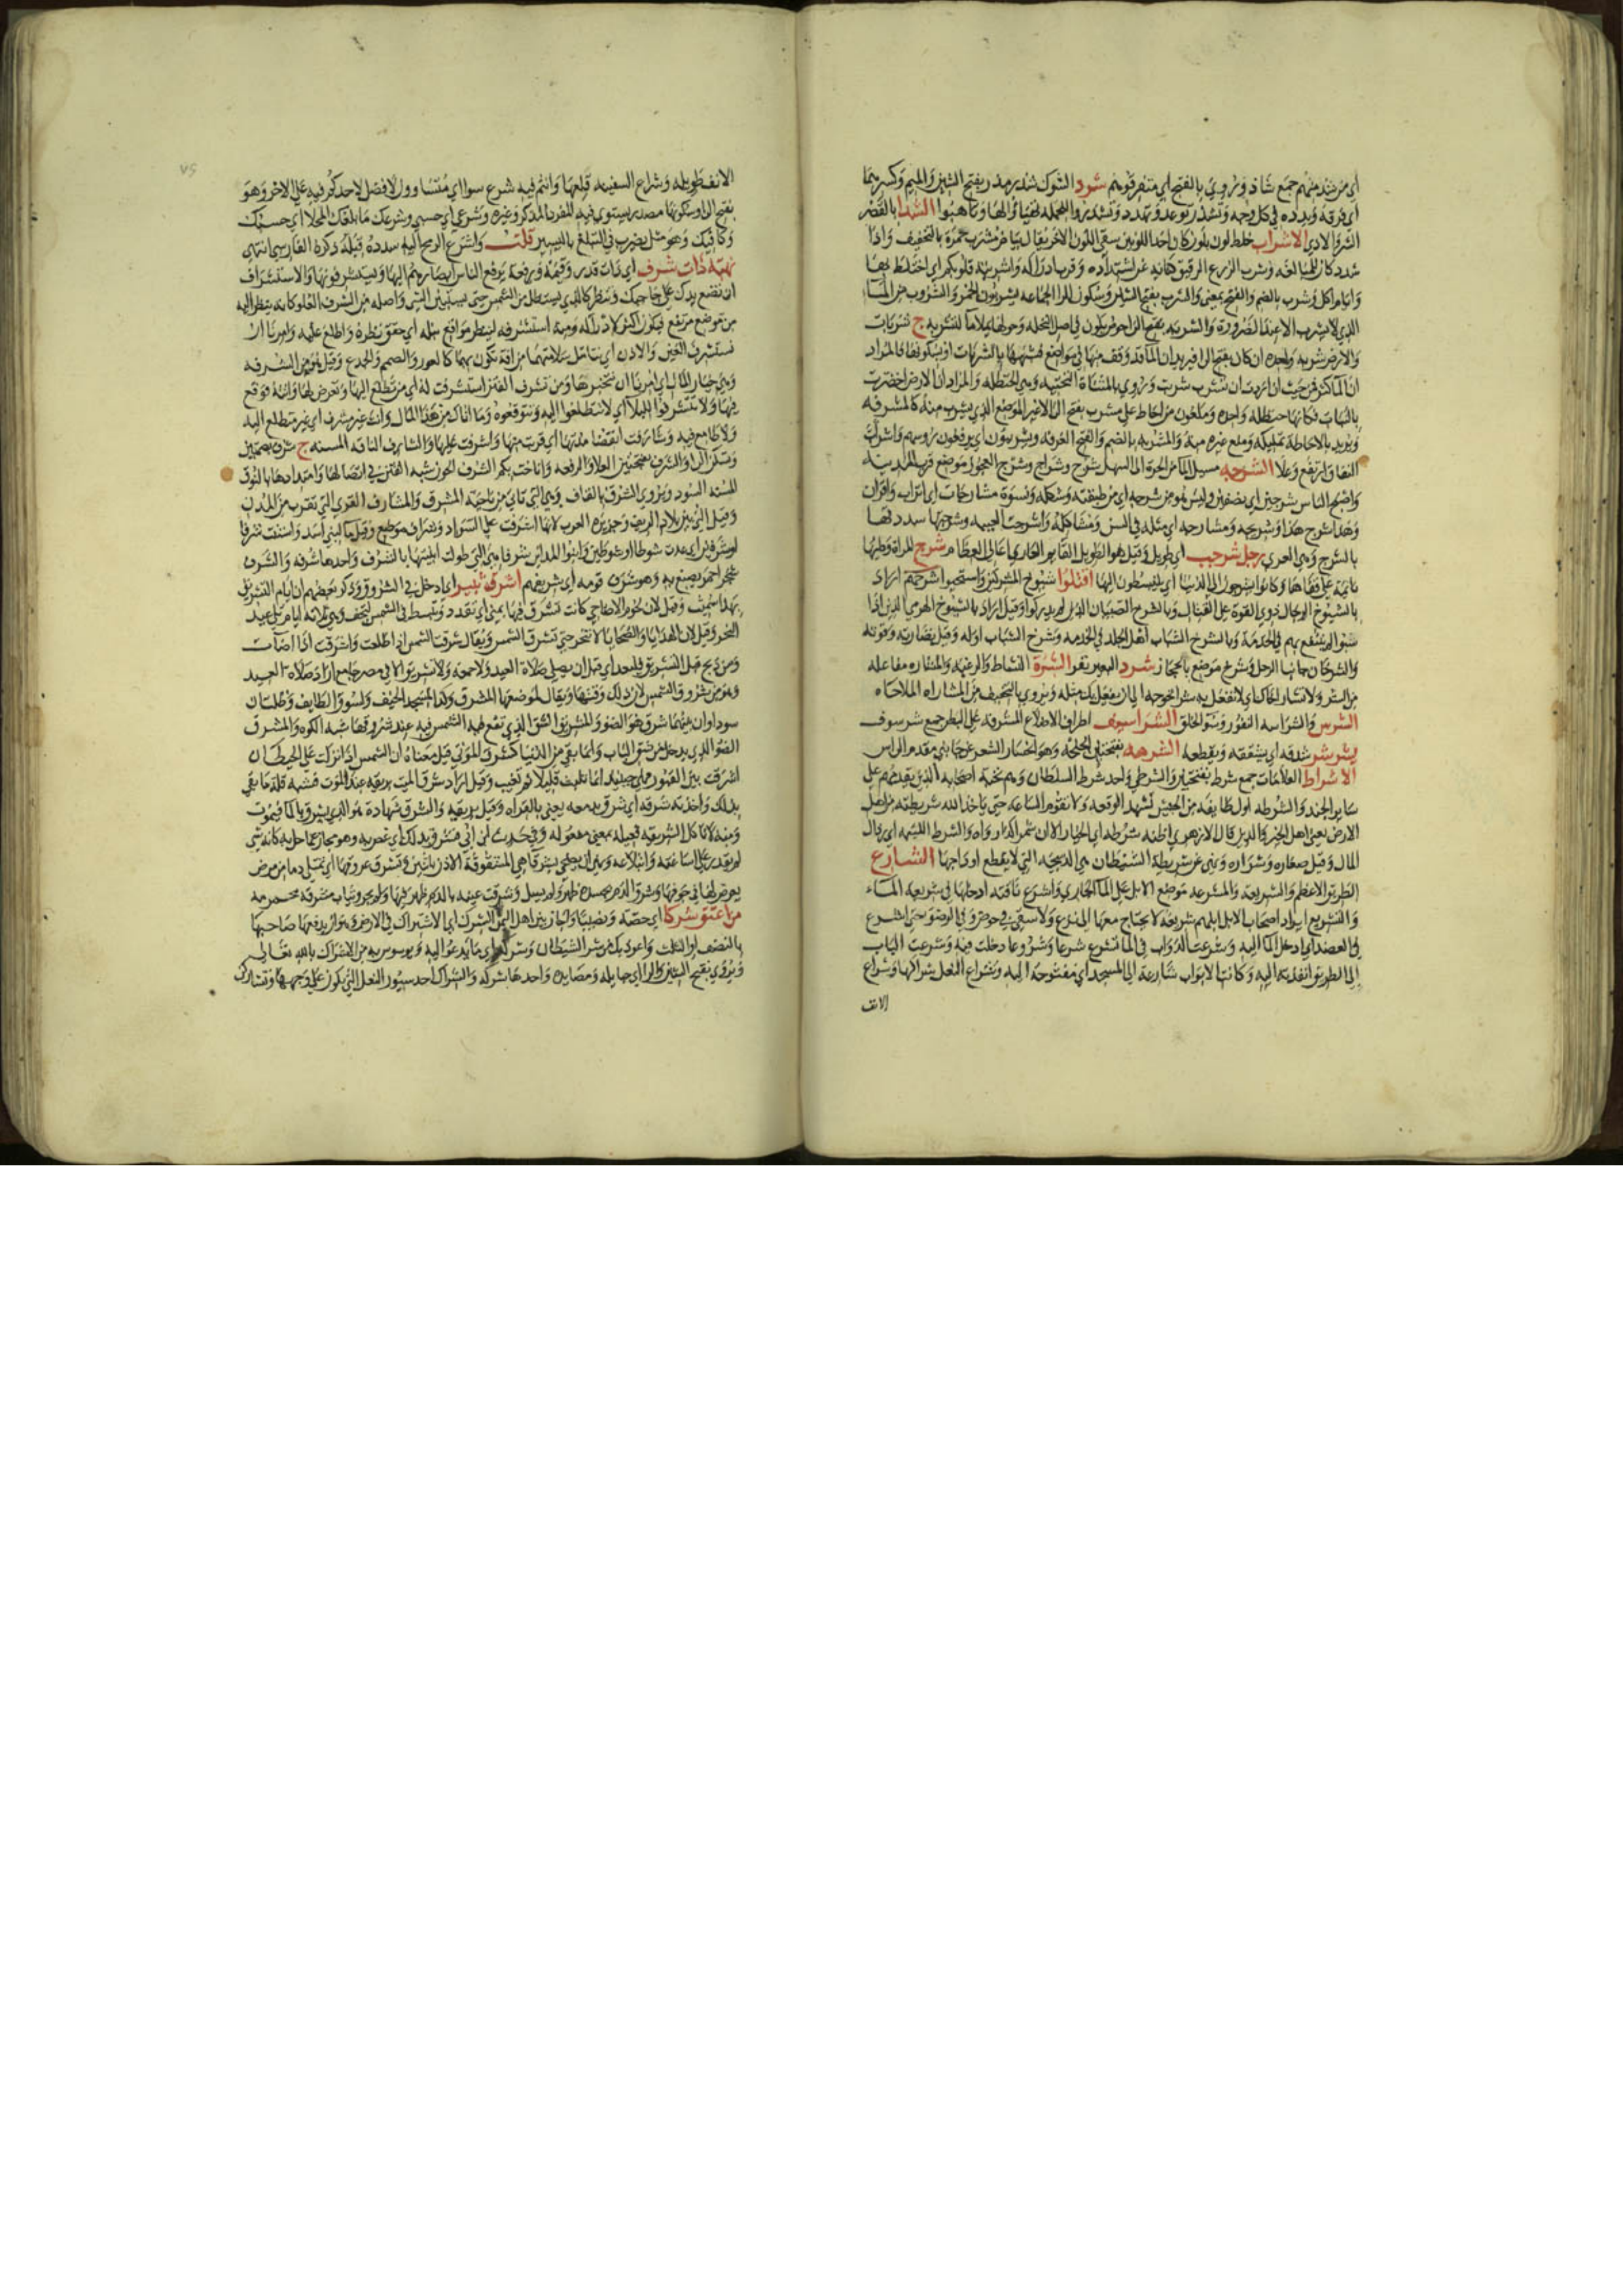 اي من شذ منهم جمع شاذ وروي بالفتح اي متفرقوهم شرد الشوك شذر مذر بفتح الشين والميم وكسرهما
اي فرقه وبدده في كل وجه وتشذر توعد وتهدد وتشذروا للحمله تهياوا لها وتاهبوا الشذا بالقصر
الشر والاذي الاشراب خلط لون بلون كان احد اللونين سقي اللون الاخر يقال بياض مشرب حمرة بالتخفيف واذا
شدد كان للمبالغه وشرب الزرع الدقيق كنايه عن اشتداده وقرب ادراكه واشربته قلوبكم اي اختلط بها
وايام اكل وشرب بالضم والفتح بمعني والشرب بفتح الشين وسكون الرا الجماعه يشربون الخمر والشروب من الما
الذي لا يشرب الا عند الضرورة والشربه بفتح الرا حوض يكون في اصل النخله وحولها يملا ما لتشربه ج شربات
والارض شربه واحده ان كان بفتح الرا فيريد ان الما قد وقف منها في مواضع فشبهها بالشربات او بسكونها فالمراد
ان الما كثر فمن حيث ان اردت ان تشرب شربت وروي بالمثناة التحتيه وهي الحنظله والمراد ان الارض اخضرت
بالنبات فكانها حنظله واحده وملعون من احاط علي مشرب بفتح الرا الاغير الموضع الذي يشرب منه كالمشرفه
ويريد بالاحاطه تملكه ومنع غيره منه والمشربه بالضم والفتح الغرفه ويشربون اي يرفعون رؤسهم واشراب
النفاق ارتفع وعلا الشرجه مسيل الما من الحرة الي السهل شرج وشراج وشرج العجول موضع قرب المدينه
واصبح الناس شرجين اي نصفين وليس هو من شرجه اي من طبقته وشكله ونسوة مشارجات اي اتراب واقران
وهذا شرج هذا وشريجه ومشارجه اي مثله في السن ومشاكله واشرجت العيبه وشرجتها شددتها
بالشرج وهي العري رجل شرجب اي طويل وقيل هو الطويل القايم العاري اعالي العظام شرح المراة وطيها
نايمة علي قفاها وكانوا يشرحون الي الدنيا اي ينبسطون اليها اقتلوا شيوخ المشركين واستحيوا شرخهم اراد
بالشيوخ الرجال ذوي القوة علي القتال وبالشرخ الصبيان الذين لم يدركوا وقيل اراد بالشيوخ الهرمي الذين اذا
سبوا لم ينتفع بهم في الخدمة وبالشرخ الشباب اهل الجلد في الخدمه وشرخ الشباب اوله وقيل نضارته وقوته
والشرخان جانبا الرحل وشرخ موضع بالحجاز شرد البعير نفر الشرة النشاط والرغبه والمشاره مفاعله
من الشر ولا تشار اخاك اي لا تفعل به شرا تحوجه الي ان يفعل بك مثله ويروي بالتخفيف من المشاراه الملاحاه
الشرس والشراسه النفور وسو الخلق الشراسيف اطراف الاضلاع المشرفه علي البطن جمع شرسوف
يشرشر شدقه اي يشققه ويقطعه الشرصه بفتحتين الجلحه وهو انحسار الشعر عن جانبي مقدم الراس
الاشراط العلامات جمع شرط بفتحتين والشرطي واحد شرط السلطان وهم نخبة اصحابه الذين يقدمهم علي
ساير الجند والشرطه اول طايفه من الجيش تشهد الوقعه ولا تقوم الساعة حتي ياخذ الله شريطته من اهل
الارض يعني اهل الخير والدين قال الازهري اظنه شرطه اي الخيار الا ان شمرا كذا رواه والشرط اللئيمه اي رذال
المال وقيل صغاره وشراره ونهي عن شريطة الشيطان هي الذبيحه التي لا يقطع اوداجها الشارع
الطريق الاعظم والشريعه والمشرعه موضع الابل علي الما الجاري واشرع ناقته ادخلها في شريعه الماء
والتشريع ايراد اصحاب الابل ابلهم شريعه لا يحتاج معها الي نزع ولا سقي في حوض وفي الوضو حتي اشرع
في العضد اي ادخل الما اليه وشرعت الدواب في الما تشرع شرعا وشروعا دخلت فيه وشرعت الباب
الي الطريق انفذته اليه وكانت الابواب شارعة الي المسجد اي مفتوحة اليه وشراع النعل شراكها وشراع
الانف
الانف طويله وشراع السفينه قلعها وانتم فيه شرع سوا اي متساوون لا فضل لاحدكم فيه علي الاخر وهو
بفتح الرا وسكونها مصدر يستوي فيه المفرد المذكر وغيره وشرعي اي حسبي وشرعك ما بلغك المحلا اي حسبك
وكافيك وهو مثل يضرب في التبلغ باليسير قلت واشرع الرمح اليه سدده قبله ذكرة الفارسي انتهي
نهبة ذات شرف اي ذات قدر وقيمة ورفعة يرفع الناس ابصارهم اليها ويستشرفونها والاستشراف
ان تضع يدك علي حاجبك وتنظر كالذي يستظل من الشمس حتي يستبين الشي واصله من الشرف العلو كانه ينظر اليه
من موضع مرتفع فيكون اكثر لادراكه ومنه استشرفه لينظر مواقع نبله اي حقق نظره واطلع عليه وامرنا ان
نستشرف العين والاذن اي نتامل سلامتهما من افة تكون بهما كالعور والصمم والجدع وقيل هو من الشرفه
وهي خيار المال اي امرنا ان نتخيرها ومن تشرف الفتن استشرفت له اي من تطلع اليها وتعرض لها واتته فوقع
فيها ولا تتشرفوا للبلا اي لا تتطلعوا اليه وتتوقعوه وما اتاك من هذا المال وانت غير مشرف اي غير متطلع اليه
ولا طامع فيه وشارفت انقضا عدتها اي قربت منها واشرفت عليها والشارف الناقه المسنه ج شرف بضمتين
وتسكن الرا والشرف بفتحتين العلو والرفعه واناخت بكم الشرف الجون شبه الفتن في اتصالها وامتدادها بالنوق
المسنه السود ويروي الشرق بالقاف وهي التي تاتي من ناحية المشرق والمشارف القري التي تقرب من المدن
وقيل التي بين بلاد الريف وجزيرة العرب لانها اشرفت علي السواد وشراف موضع وقيل ما لبني اسد واستنت شرفا
او شرفين اي عدت شوطا او شوطين وابنوا المداين شرفا هي التي طولت ابنيتها بالشرف واحدها شرفة والشرف
شجر احمر يصبغ به وهو شرف قومه اي شريفهم اشرق ثبير اي ادخل في الشروق وذكر بعضهم ان ايام التشريق
بهذا سميت وقيل لان لحوم الاضاحي كانت تشرق فيها بمني اي تقدد وتبسط في الشمس لتجف وهي ثلاثه ايام تلي عيد
النحر وقيل لان الهدايا والضحايا لا تنحر حتي تشرق الشمس ويقال شرقت الشمس اذا طلعت واشرقت اذا اضاءت
ومن ذبح قبل التشريق فليعد اي قبل ان يصلي صلاة العيد ولا جمعة ولا تشريق الا في مصر جامع اراد صلاة العيد
وهو من شروق الشمس لان ذلك وقتها ويقال لموضعها المشرق وكذا لمسجد الخيف ولسوق الطايف وظلتان
سوداوان بينهما شرق هو الضوء والمشريق الشق الذي تقع فيه الشمس فيه عند شروقها شبه الكوة والمشرق
الضوء الذي يدخل من شق الباب وانما بقي من الدنيا كشرق الموتي قيل معناه ان الشمس اذا نزلت علي الحيطان
اشرقت بين القبور فهي حينئذ انما تلبث قليلا ثم تغيب وقيل اراد شرق الميت بريقه عند الموت فشبه قلة ما بقي
بذلك واخذته شرقة اي شرق بدمعه يعني بالقراه وقيل بريقه والشرق شهادة هو الذي يشرق بالما فيموت
ومنه لا تاكل الشريقه فعيله بمعني مفعوله وفي حديث ابن ابي فشرق بذلك اي غص به وهو مجاز عما حل به كانه شي
لم يقدر علي اساغته وابتلاعه ونهي ان يضحي بشرقا هي المشقوقة الاذن باثنين وتشرق عروقها اي تمتلي دما من مرض
يعرض لها في جوفها وشرق الدم بجسده ظهر ولم يسل وشرقت عينه بالدم ظهر فيها ولم يجر وثياب مشرقة محمرمه
من اعتق شركا اي حصة ونصيبا واجاز بين اهل اليمن الشرك اي الاشتراك في الارض وهو ان يدفعها صاحبها
بالنصف او الثلث واعوذ بك من شر الشيطان وشركه اي ما يدعو اليه ويوسوس به من الاشراك بالله تعالي
ويروي بفتح الشين والرا اي حبايله ومصايده واحدها شركه والشراك احد سيور النعل التي تكون علي وجهها وتشارك